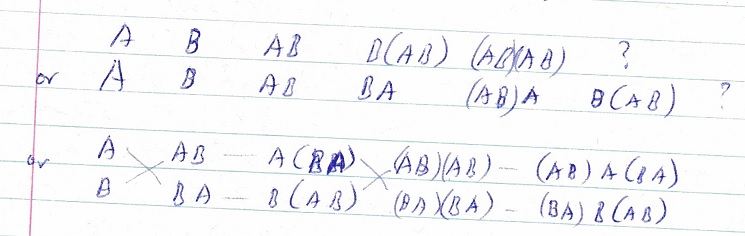 A B AB B(AB) (AB)(AB) ?
or A B AB BA (AB)A B(AB) ?
or A AB — A(BA) (AB)(AB) — (AB)A(BA)
B BA — B(AB) (BA)(BA) — (BA)B(AB)